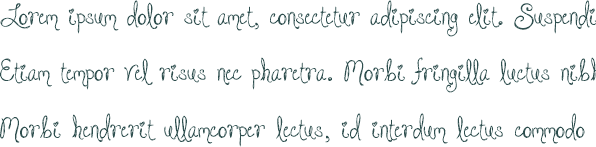 Lorem ipsum dolor sit amet, consectetur adipiscing elit. Suspendi
Etiam tempor vel risus nec pharetra. Morbi fringilla luctus nibh
Morbi hendrerit ullamcorper lectus, id interdum lectus commodo